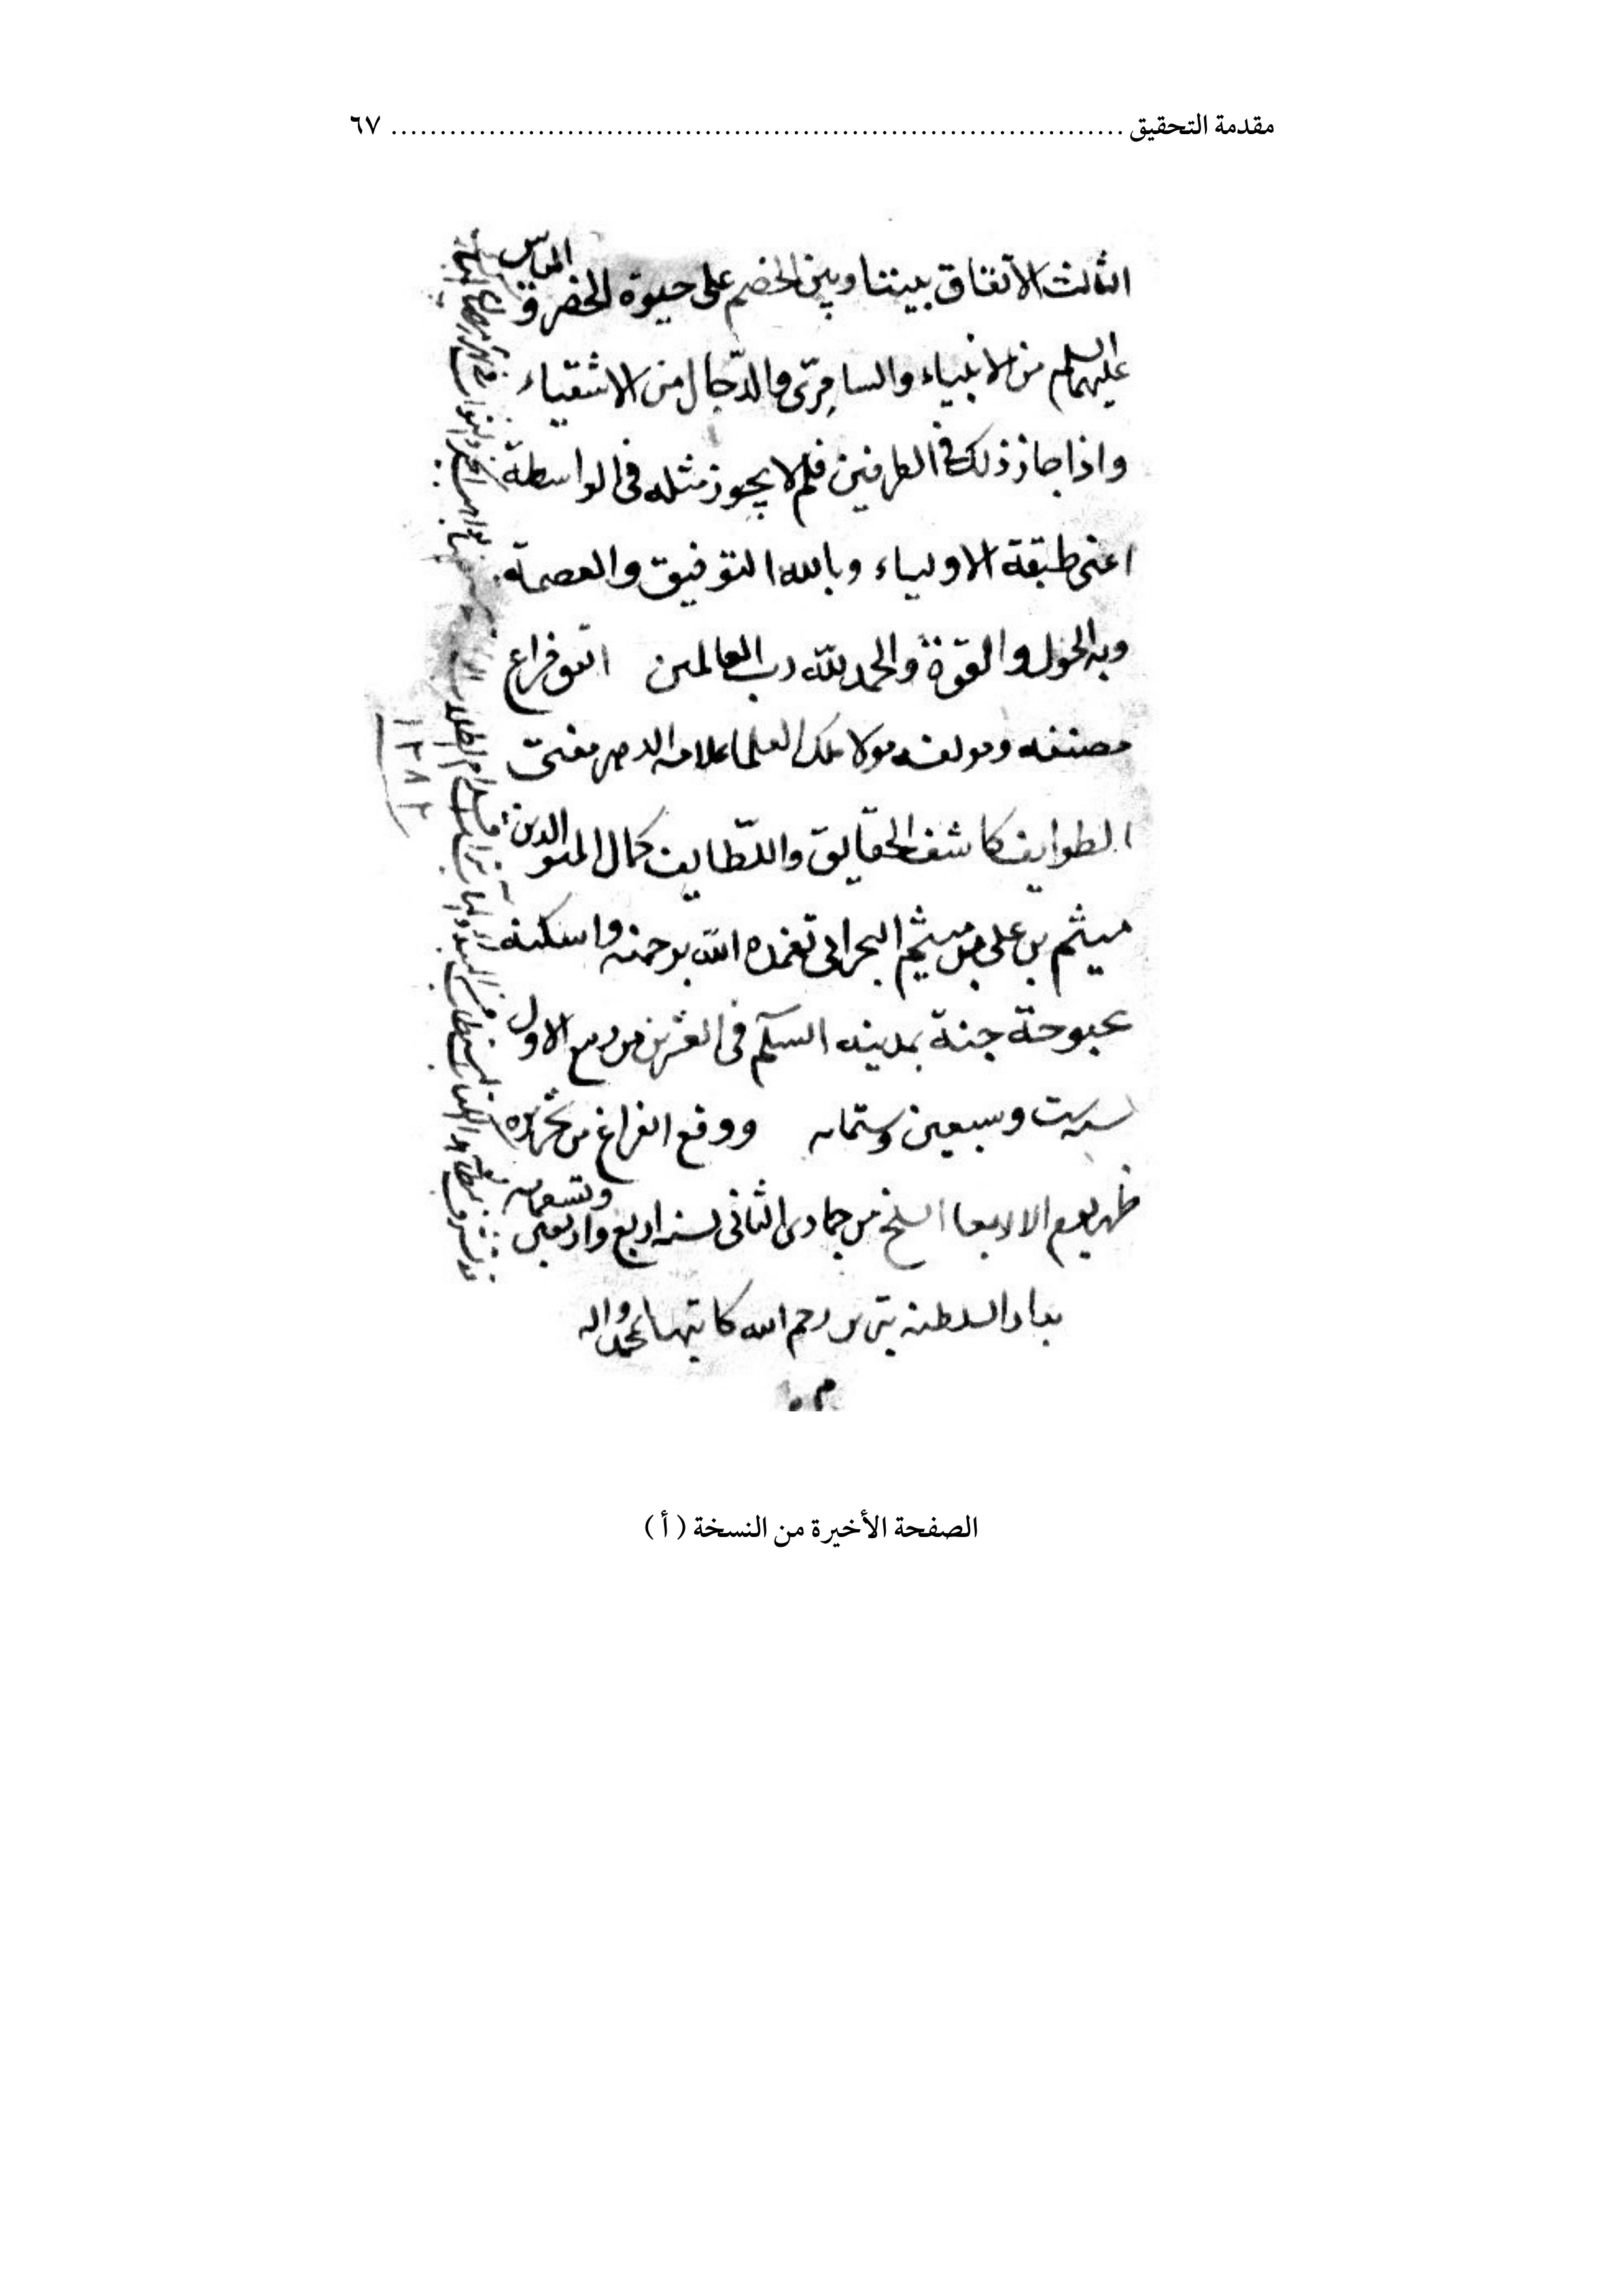 مقدمة التحقيق ........................................................................... ٦٧
الثالث الاتفاق بيننا وبين الخصم على حيوة الخضر و الياس
عليهما السلم من الانبياء والسامرّى والدّجال من الاشقياء
واذا جاز ذلك فى الطرفين فلم لا يجوز مثله فى الواسطة
اعنى طبقة الاولياء وبالله التوفيق والعصمة
وبه الحول والقوة والحمد لله رب العالمين اتفق فراغ
مصنفه ومولفه مولا ملك العلما علامه الدهر مفتى
الطوايف كاشف الحقايق واللّطايف كمال الملة والدين
ميثم بن على بن ميثم البحرانى تغمده الله برحمته واسكنه
بحبوحة جنة بمدينه السلم فى العشرين من ربيع الاول
لسنه ست وسبعين وستمايه ووقع الفراغ من تحريره
ظهر يوم الاربعا السلخ من جمادى الثانى لسنه اربع واربعين وتسعمايه
بدار السلطنه تبريز رحم الله كاتبها بمحمد واله
م
١٣٨٢
الصفحة الأخيرة من النسخة ( أ )